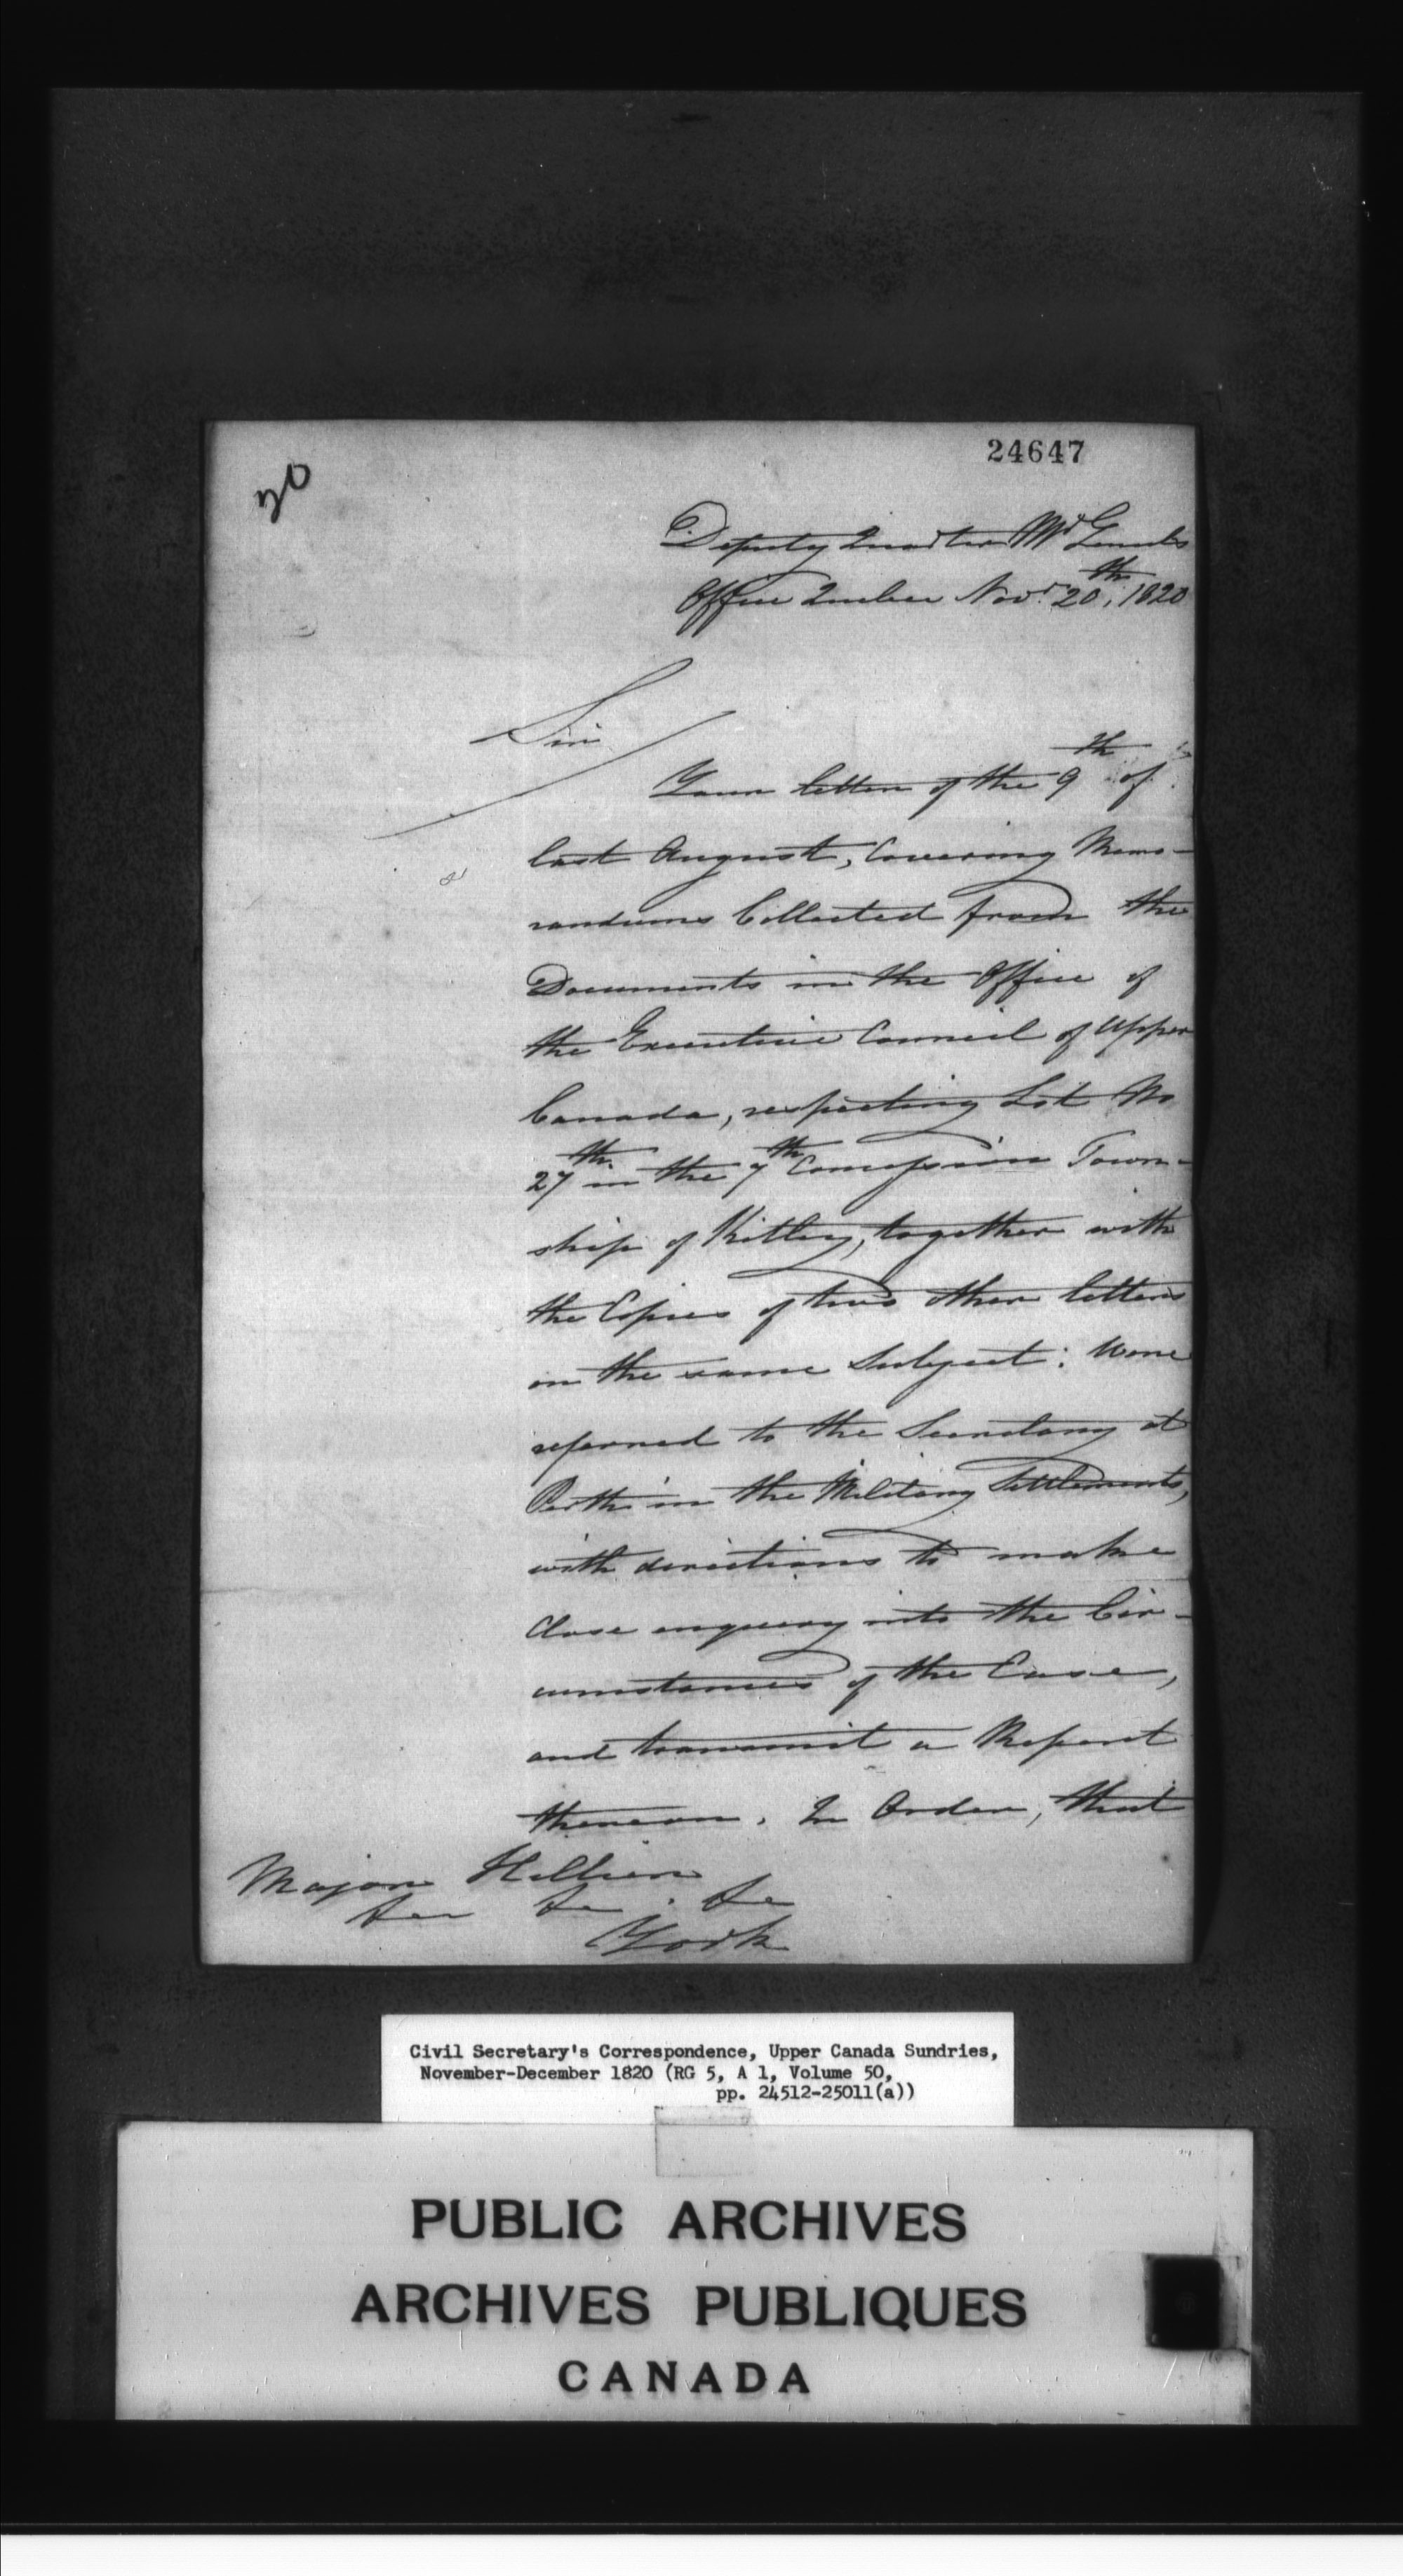 24647
20
Deputy Quarter Mr Generals
Office Quebec Novr. 20th, 1820
Sir
Your letter of the 9th of
last August, Covering Memo-
randums Collected from the
Documents in the Office of
the Executive Council of Upper
Canada, respecting Lot No
27th in the 7th Concession Town-
ship of Kitley, together with
the Copies of two other letters
on the same Subject: Were
referred to the Secretary at
Perth in the Military Settlements,
with directions to make
close enquiry into the Cir-
cumstances of the Case,
and transmit a Report
thereon. In Order, that
Major Hillier
&c &c &c
York
Civil Secretary's Correspondence, Upper Canada Sundries,
November-December 1820 (RG 5, A 1, Volume 50,
pp. 24512-25011(a))
PUBLIC ARCHIVES
ARCHIVES PUBLIQUES
CANADA